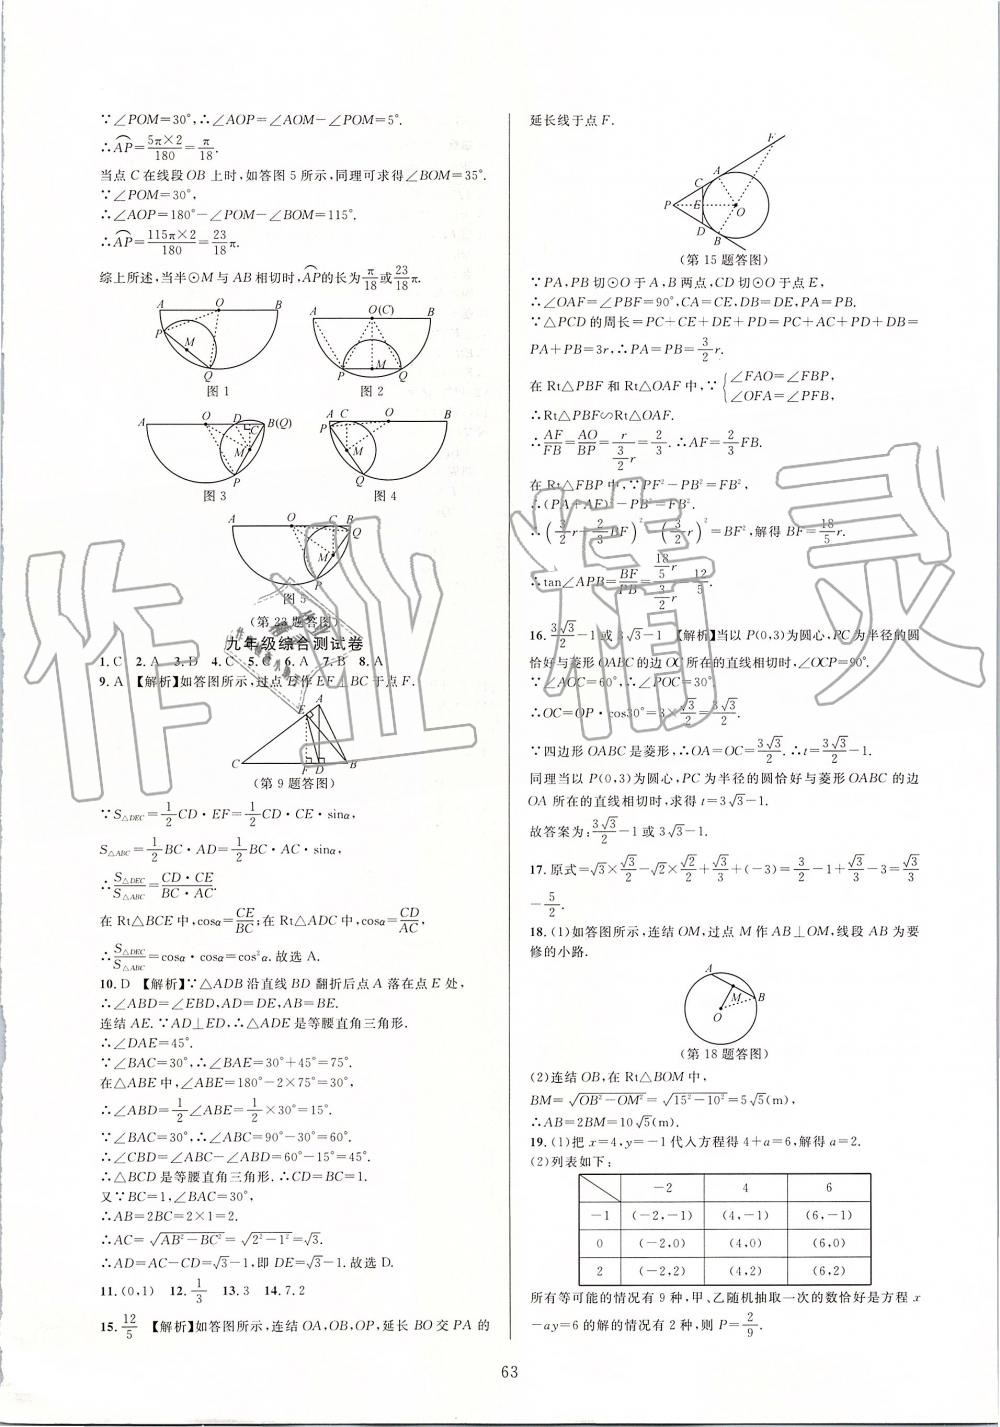 ∵∠POM=30°,∴∠AOP=∠AOM-∠POM=5°.
∴AP⌒=5π×2/180=π/18.
当点C在线段OB上时,如答图5所示,同理可求得∠BOM=35°.
∵∠POM=30°,
∴∠AOP=180°-∠POM-∠BOM=115°.
∴AP⌒=115π×2/180=23/18π.
综上所述,当半⊙M与AB相切时,AP⌒的长为π/18或23/18π.
A O B P M Q
图1
A O(C) B P M Q
图2
A O D C B(Q) M P
图3
A C O B P M Q
图4
A O C B Q M P
图5
(第23题答图)
九年级综合测试卷
1.C 2.A 3.D 4.C 5.C 6.A 7.B 8.A
9.A 【解析】如答图所示,过点E作EF⊥BC于点F.
A E C F D B
(第9题答图)
∵S△DEC=1/2CD·EF=1/2CD·CE·sinα,
S△ABC=1/2BC·AD=1/2BC·AC·sinα,
∴S△DEC/S△ABC=CD·CE/BC·AC.
在Rt△BCE中,cosα=CE/BC;在Rt△ADC中,cosα=CD/AC,
∴S△DEC/S△ABC=cosα·cosα=cos²α.故选A.
10.D 【解析】∵△ADB沿直线BD翻折后点A落在点E处,
∴∠ABD=∠EBD,AD=DE,AB=BE.
连结AE.∵AD⊥ED,∴△ADE是等腰直角三角形.
∴∠DAE=45°.
∵∠BAC=30°,∴∠BAE=30°+45°=75°.
在△ABE中,∠ABE=180°-2×75°=30°,
∴∠ABD=1/2∠ABE=1/2×30°=15°.
∵∠BAC=30°,∴∠ABC=90°-30°=60°.
∴∠CBD=∠ABC-∠ABD=60°-15°=45°.
∴△BCD是等腰直角三角形.∴CD=BC.
又∵BC=1,∠BAC=30°,
∴AB=2BC=2×1=2.
∴AC=√(AB²-BC²)=√(2²-1²)=√3.
∴AD=AC-CD=√3-1,即DE=√3-1.故选D.
11.(0,1) 12.1/3 13.3 14.7.2
15.12/5 【解析】如答图所示,连结OA,OB,OP,延长BO交PA的
延长线于点F.
F A C P E O D B
(第15题答图)
∵PA,PB切⊙O于A,B两点,CD切⊙O于点E,
∴∠OAF=∠PBF=90°,CA=CE,DB=DE,PA=PB.
∵△PCD的周长=PC+CE+DE+PD=PC+AC+PD+DB=
PA+PB=3r,∴PA=PB=3/2r.
在Rt△PBF和Rt△OAF中,∵{∠FAO=∠FBP,
∠OFA=∠PFB,
∴Rt△PBF∽Rt△OAF.
∴AF/FB=AO/BP=r/(3/2r)=2/3.∴AF=2/3FB.
在Rt△FBP中,∵PF²-PB²=FB²,
∴(PA+AF)²-PB²=FB².
∴(3/2r+2/3BF)²-(3/2r)²=BF²,解得BF=18/5r.
∴tan∠APB=BF/PB=(18/5r)/(3/2r)=12/5.
16.3√3/2-1或3√3-1 【解析】当以P(0,3)为圆心,PC为半径的圆
恰好与菱形OABC的边OC所在的直线相切时,∠OCP=90°.
∵∠AOC=60°,∴∠POC=30°.
∴OC=OP·cos30°=3×√3/2=3√3/2.
∵四边形OABC是菱形,∴OA=OC=3√3/2.∴t=3√3/2-1.
同理当以P(0,3)为圆心,PC为半径的圆恰好与菱形OABC的边
OA所在的直线相切时,求得t=3√3-1.
故答案为:3√3/2-1或3√3-1.
17.原式=√3×√3/2-√2×√2/2+√3/3+(-3)=3/2-1+√3/3-3=√3/3
-5/2.
18.(1)如答图所示,连结OM,过点M作AB⊥OM,线段AB为要
修的小路.
A M B O
(第18题答图)
(2)连结OB,在Rt△BOM中,
BM=√(OB²-OM²)=√(15²-10²)=5√5(m),
∴AB=2BM=10√5(m).
19.(1)把x=4,y=-1代入方程得4+a=6,解得a=2.
(2)列表如下:
-2 4 6
-1 (-2,-1) (4,-1) (6,-1)
0 (-2,0) (4,0) (6,0)
2 (-2,2) (4,2) (6,2)
所有等可能的情况有9种,甲、乙随机抽取一次的数恰好是方程x
-ay=6的解的情况有2种,则P=2/9.
63
作业精灵